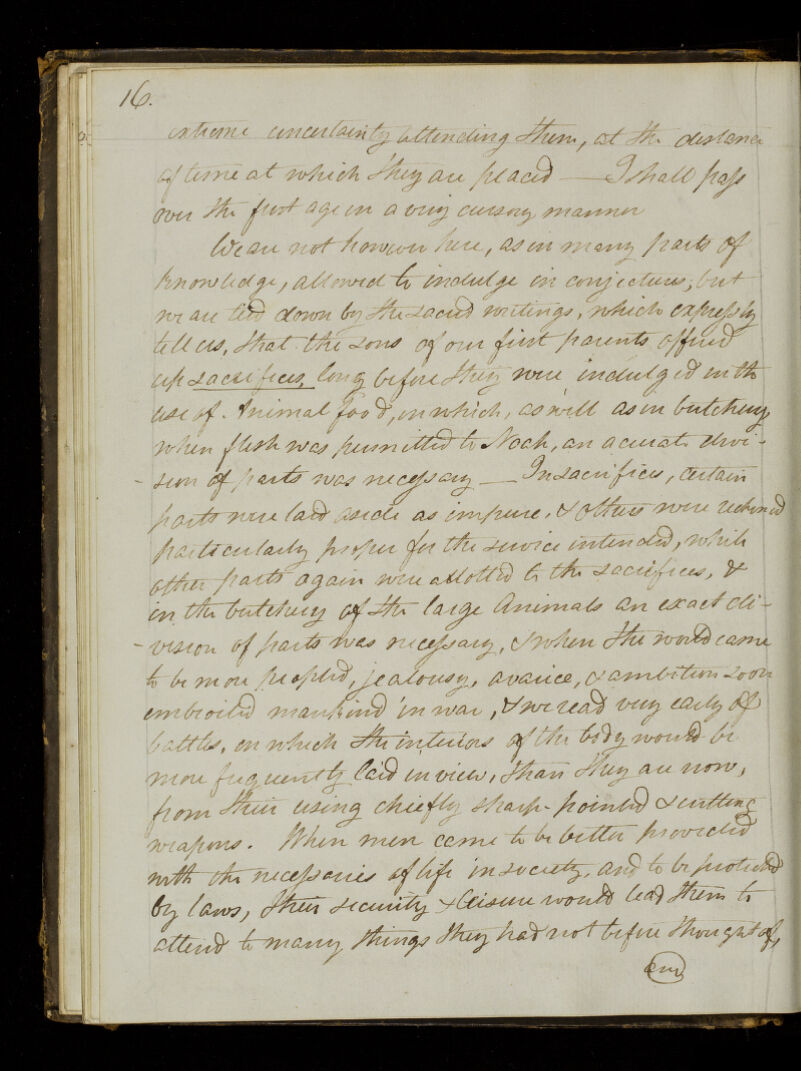 16.
extreme uncertainty attending them, at the distance
of time at which they are placed — I shall pass
over the first ages in a very cursory manner
We are not however here, as in many parts of
knowledge, allowed to indulge in conjecture; but
we are tied down by the sacred writings, which expressly
tell us, that the sons of our first parents offered
up sacrifices, long before they were indulged in the
use of Animal food, in which, as well as in butchery,
when flesh was permitted to Noah, an acurate divi-
-sion of parts was necessary — In sacrifices, certain
parts were laid aside as impure, & others were reckoned
particularly proper for the service intended, while
other parts again were allotted to the sacrifices, &
in the butchery of the large Animals an exact di-
-vision of parts was necessary, & when the world came
to be more peopled, jealousy, avarice, & ambition soon
embroiled mankind in war, & we read very early of
battles, in which the interiors of the body would be
more frequently laid in view, than they are now,
from their using chiefly sharp-pointed & cutting
weapons. When men came to be better provided
with the necessaries of life in society, and to be protected
by laws, their security & leisure would lead them to
attend to many things they had not before thought of,
and